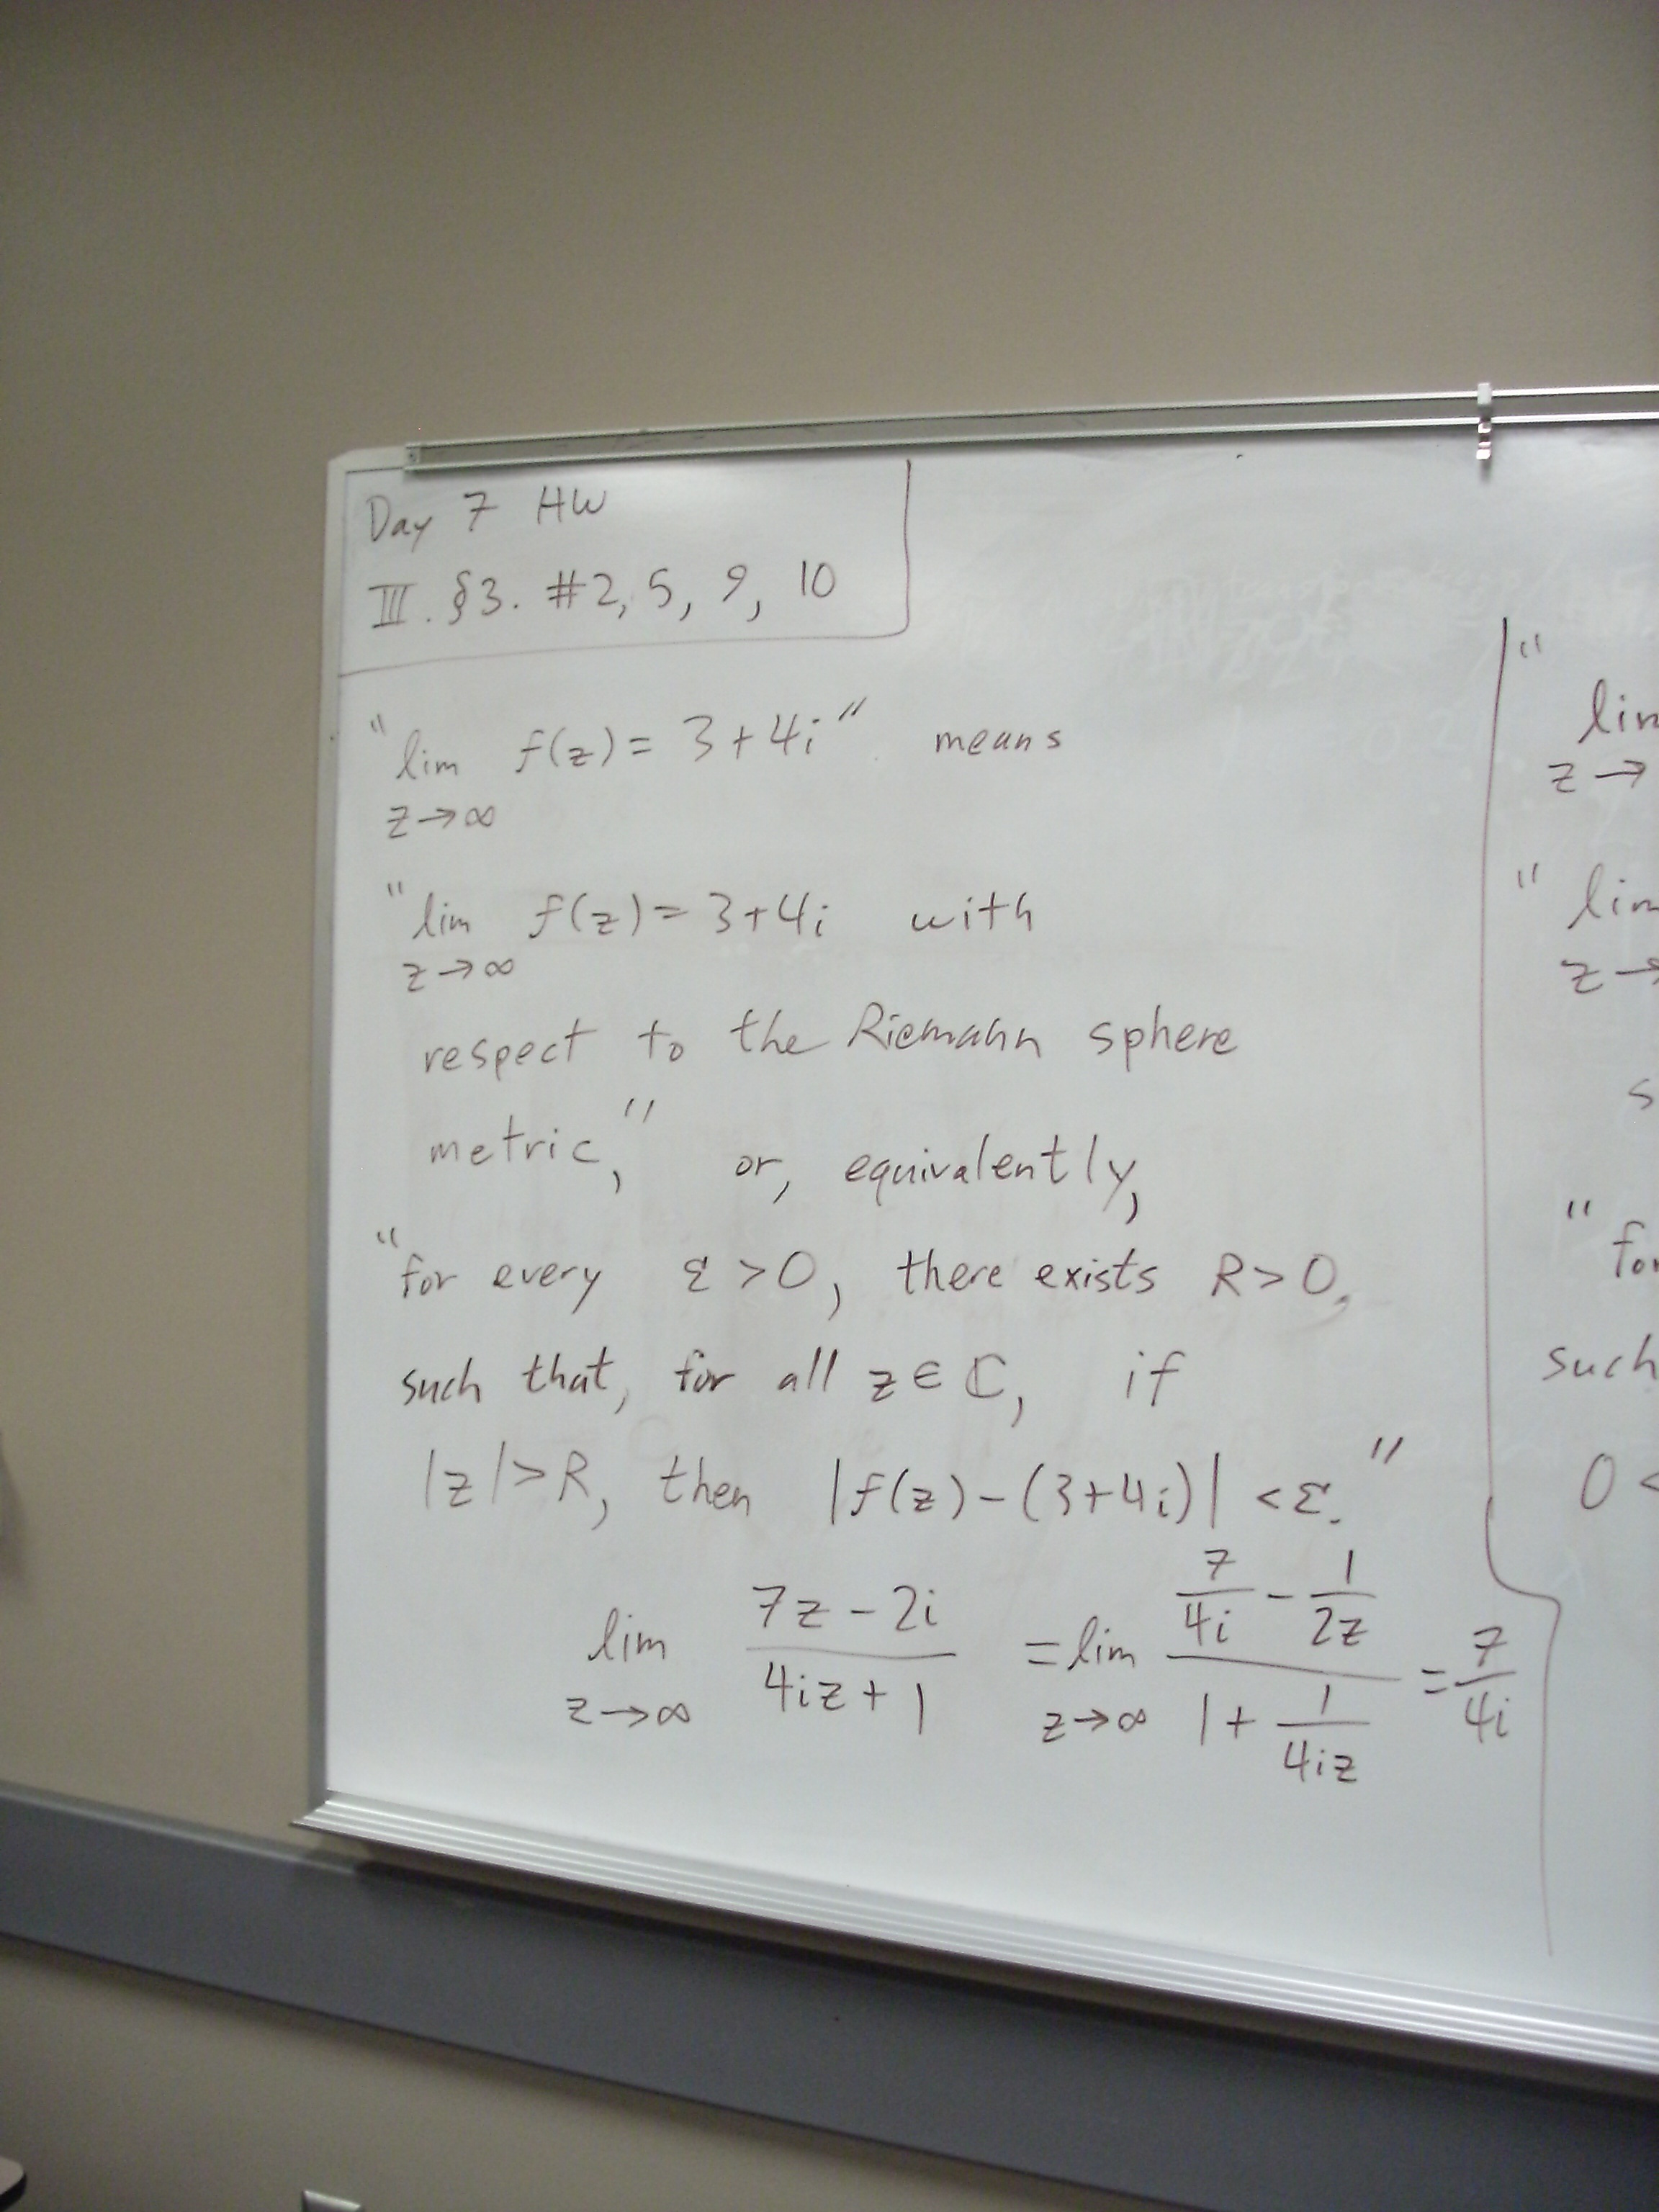 Day 7 HW
III. §3. #2, 5, 9, 10
"lim f(z) = 3+4i" means
z→∞
"lim f(z) = 3+4i with
z→∞
respect to the Riemann sphere
metric," or, equivalently,
"for every ε>0, there exists R>0,
such that, for all z∈ℂ, if
|z|>R, then |f(z)-(3+4i)| <ε."
lim z→∞ (7z-2i)/(4iz+1) = lim z→∞ (7/4i - 1/2z)/(1 + 1/4iz) = 7/4i
"
lim
z→
"lim
z→
s
"for
such
0 <